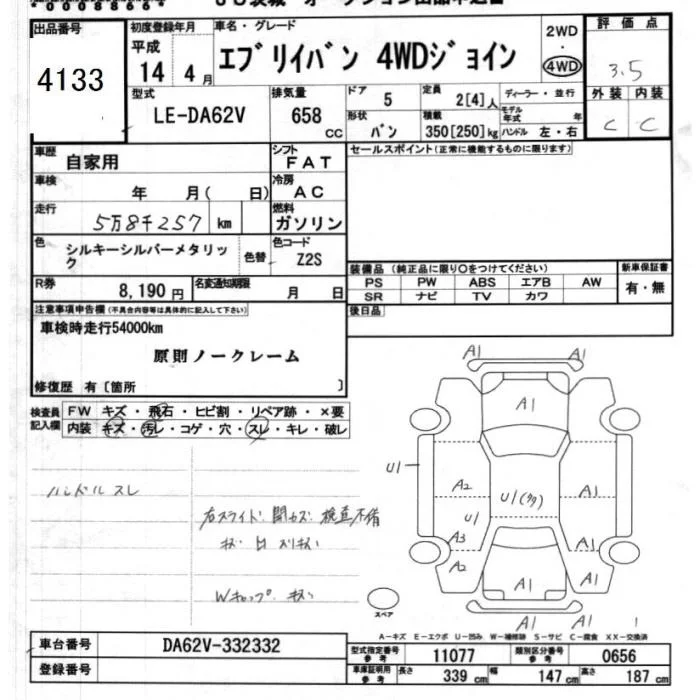 *00008664*
JU茨城 オークション出品申込書
出品番号 4133
初度登録年月 平成 14 年 4 月
車名・グレード エブリイバン 4WDジョイン
2WD ・ 4WD
評価点 3.5
外装 C 内装 C
型式 LE-DA62V
排気量 658 cc
ドア 5
形状 バン
定員 2[4]人
積載 350[250]kg
ディーラー・並行
モデル年式 年
ハンドル 左・右
車歴 自家用
シフト FAT
車検 年 月( 日)
冷房 AC
走行 5万8千257 km
燃料 ガソリン
色 シルキーシルバーメタリック
色替
色コード Z2S
R券 8,190円
名変通知期限 月 日
セールスポイント(正常に機能するものに限ります)
装備品 (純正品に限り○をつけてください)
PS PW ABS エアB AW
SR ナビ TV カワ
新車保証書 有・無
後日品
注意事項申告欄(不具合内容等は具体的に記入して下さい)
車検時走行54000km
原則ノークレーム
修復歴 有[箇所 ]
検査員記入欄
FW キズ・飛石・ヒビ割・リペア跡・×要
内装 キズ・汚レ・コゲ・穴・スレ・キレ・破レ
ハンドル スレ
右スライド
検査不備
Wキャップ キズ
A1
A1
A1
U1
A2
U1(多)
A1
U1
A3
A1
A2
A1
A1
A1
スペア
A-キズ E-エクボ U-凹み W-補修跡 S-サビ C-腐食 XX-交換済
車台番号 DA62V-332332
登録番号
型式指定番号 参考 11077
類別区分番号 参考 0656
車庫証明用 参考 長さ 339 cm 幅 147 cm 高さ 187 cm